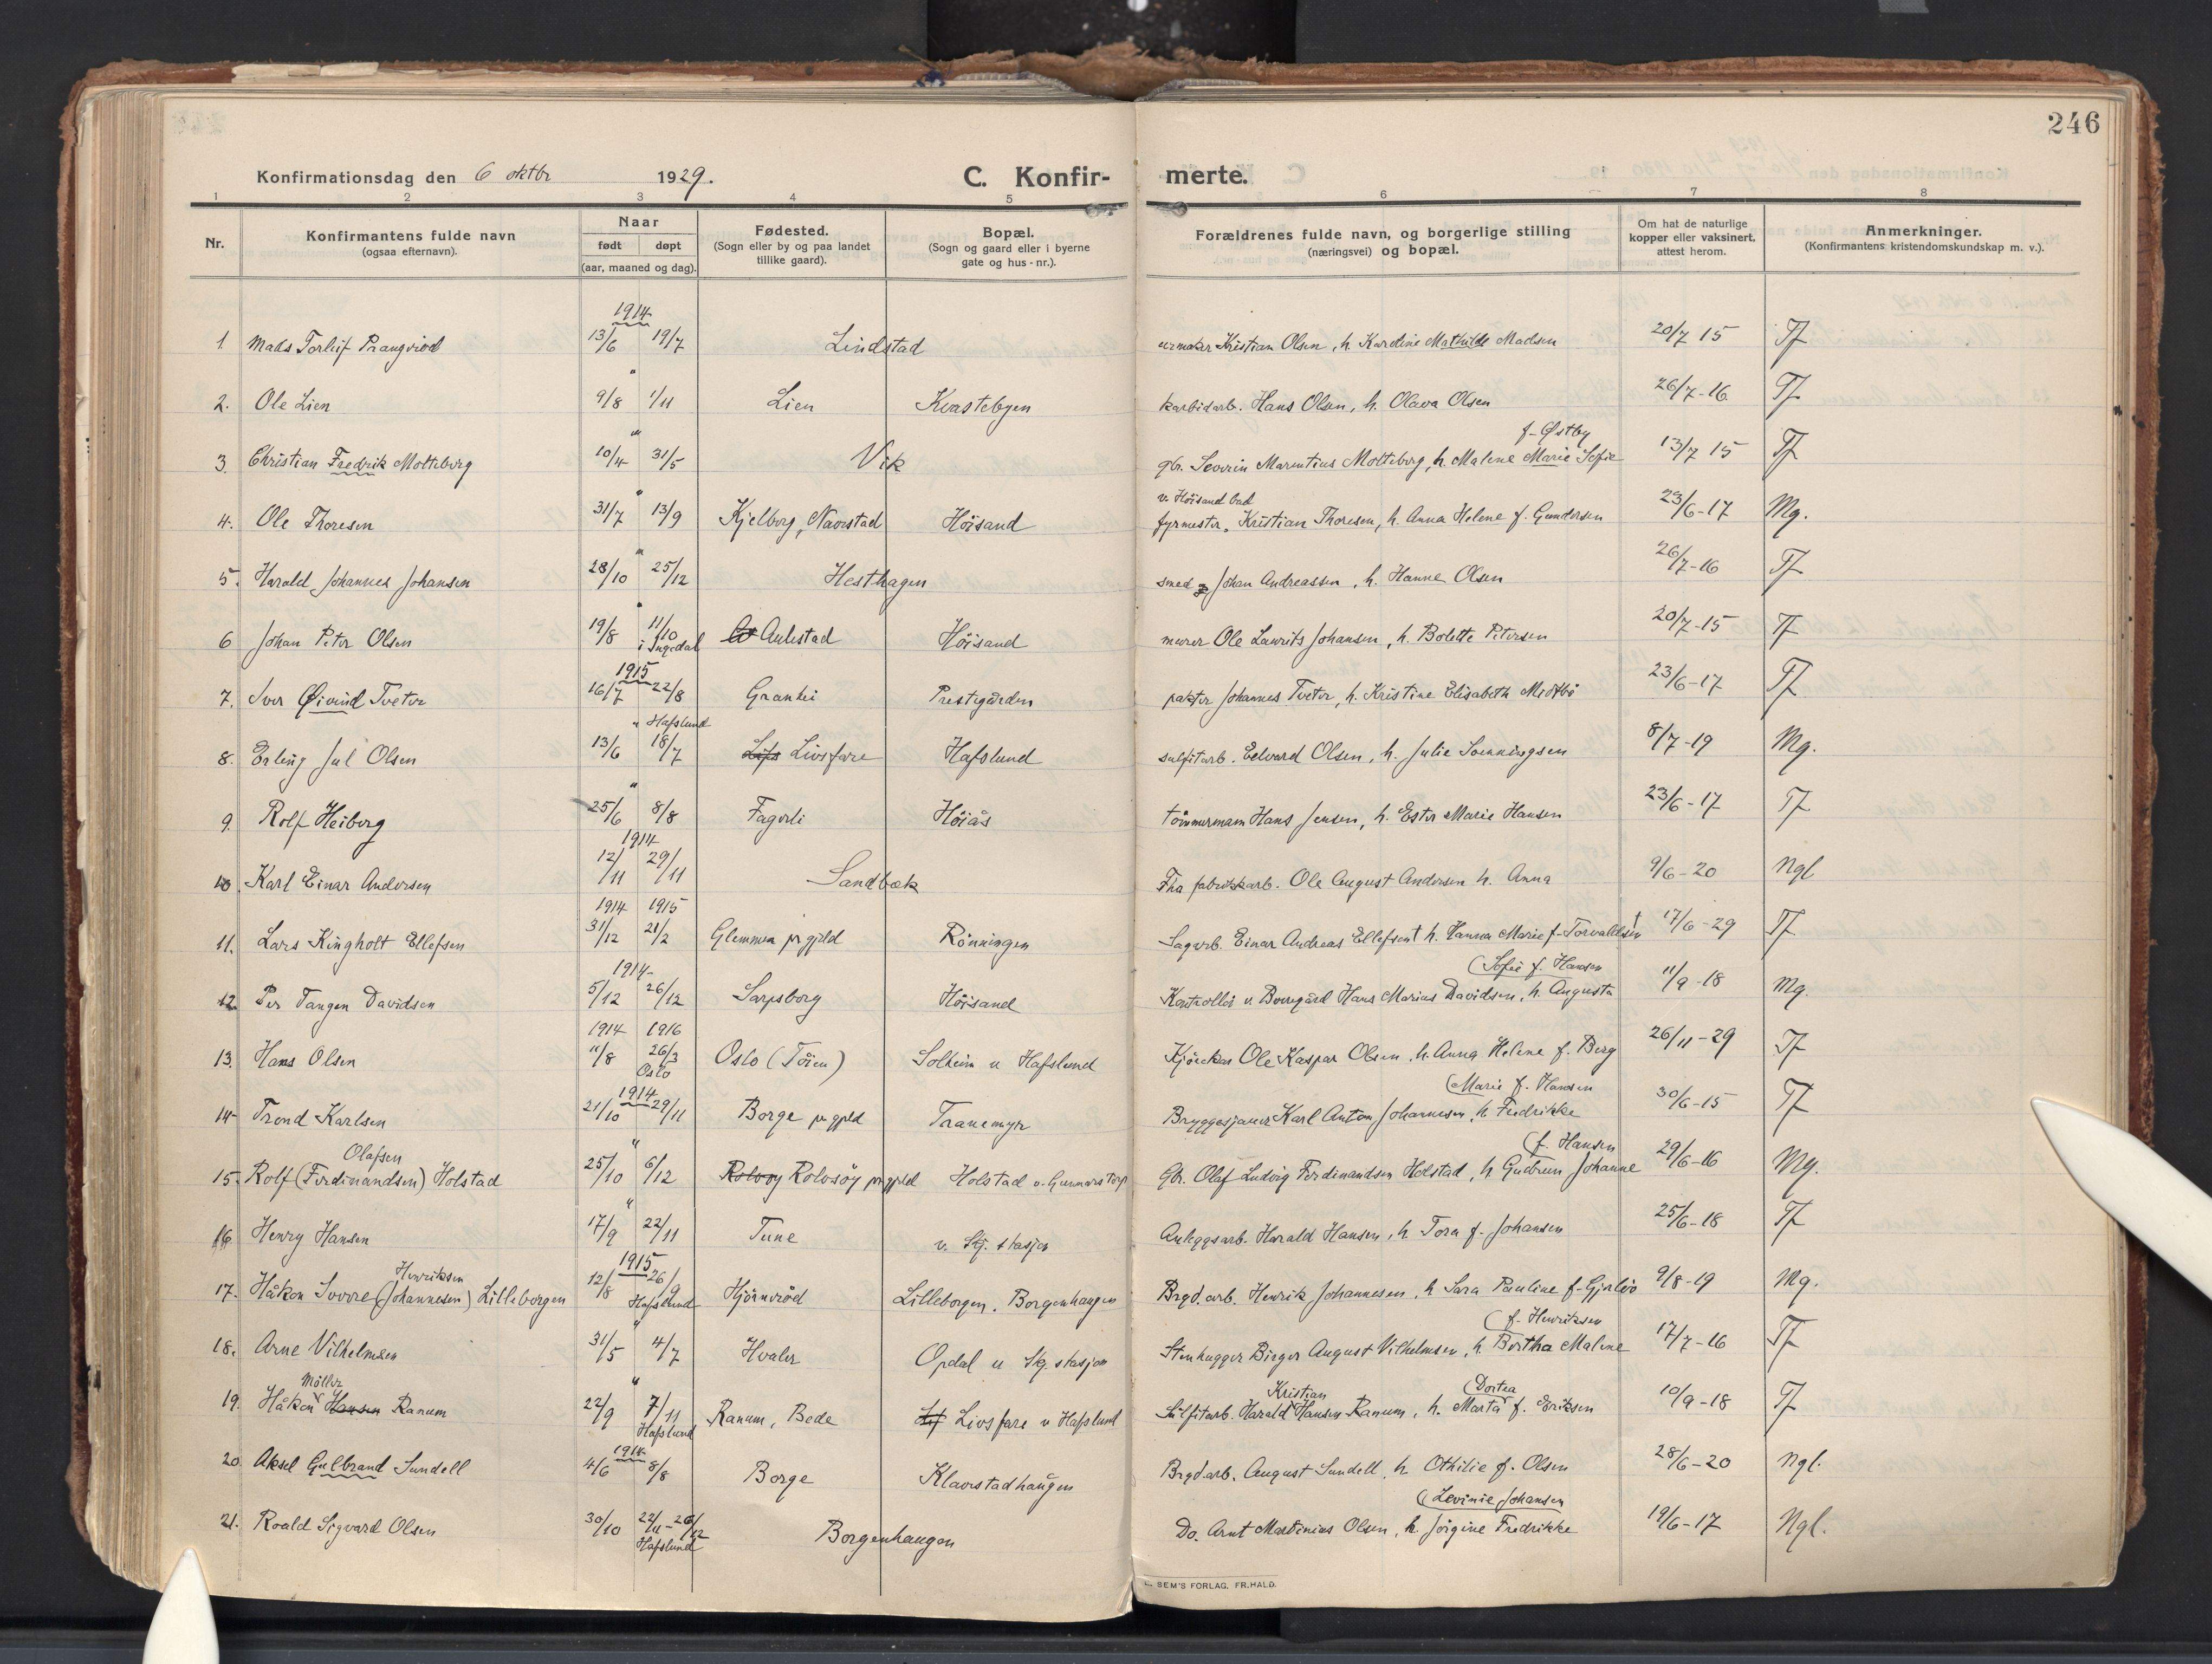 246
Konfirmationsdag den 6 oktbr 1929. C. Konfir- merte.
1 2 3 4 5 6 7 8
Nr. Konfirmantens fulde navn (ogsaa efternavn). Naar født døpt (aar, maaned og dag). Fødested. (Sogn eller by og paa landet tillike gaard). Bopæl. (Sogn og gaard eller i byerne gate og hus-nr.). Forældrenes fulde navn, og borgerlige stilling (næringsvei) og bopæl. Om hat de naturlige kopper eller vaksinert, attest herom. Anmerkninger. (Konfirmantens kristendomskundskap m. v.).
1914
1. Mads Torleif Prangerød 13/6 19/7 Lindstad urmaker Kristian Olsen, h. Kardine Mathilde Madsen 20/7 15 Tf
2. Ole Lien " 9/8 1/11 Lien Kvastebyen karbidarb. Hans Olsen, h. Olava Olsen 26/7-16 Tf
f. Østby
3. Christian Fredrik Molteberg " 10/4 31/5 Vik gbr. Severin Marentius Molteberg, h. Malene Marie Sofie 13/7 15 Tf
v. Höisand bad
4. Ole Thoresen " 31/7 13/9 Kjelberg, Navestad Höisand fyrmester, Kristian Thoresen, h. Anna Helene f. Gundersen 23/6-17 Mg.
5. Harald Johannes Johansen " 28/10 25/12 Hesthagen smed Johan Andreassen, h. Hanne Olsen 26/7-16 Tf
6 Johan Peter Olsen " 19/8 11/10 i Ingedal Aulestad Höisand murer Ole Laurits Johansen, h. Bolette Petersen 20/7-15 Tf
1915
7. Iver Øivind Tveter 16/7 22/8 Granhei Prestegården pakter Johannes Tveter, h. Kristine Elisabeth Midtbö 23/6-17 Tf
" Hafslund
8. Erling Jul Olsen 13/6 18/7 Livsfare Hafslund sulfitarb. Edvard Olsen, h. Julie Soenningsen 8/7-19 Mg.
9. Rolf Heiberg " 25/6 8/8 Fagerli Höiås tömmermann Hans Jensen, h. Ester Marie Hansen 23/6-17 Tf
1914
10. Karl Einar Andersen 12/11 29/11 Sandbæk Fha fabrikkarb. Ole August Andersen h. Anna 9/6-20 Ngl
1914 1915
11. Lars Kingholt Ellefsen 31/12 21/2 Glemmen prgjeld Rönningen Sagarb. Einar Andreas Ellefsen† h. Hanna Marie f. Torvaldsen † 17/6-29 Tf
1914 (Sofie f. Hansen
12 Per Tangen Davidsen 5/12 26/12 Sarpsborg Höisand Kontrollör v Borregård Hans Marius Davidsen, h. Augusta 11/9-18 Mg.
1914 1916
13. Hans Olsen 11/8 26/3 Oslo Oslo (Töien) Solheim v Hafslund Kjörekar Ole Kaspar Olsen, h. Anna Helene f. Berg 26/11-29 Tf
1914 (Marie f. Hansen
14 Trond Karlsen 21/10 29/11 Borge prgjeld Tranemyr Bryggesjauer Karl Anton Johannesen, h Fredrikke 30/6-15 Tf
Olafsen " (f. Hansen
15. Rolf (Ferdinandsen) Holstad 25/10 6/12 Rolvsöy prgjeld Holstad v. Gunnarstorp Gbr. Olaf Ludvig Ferdinandsen Holstad, h Gudrun Johanne 29/6-16 Mg.
16 Henry Hansen " 17/9 22/11 Tune v. Skj. stasjon Anleggsarb. Harald Hansen, h Tora f. Johansen 25/6-18 Tf
Henriksen 1915
17. Håkon Sverre (Johannesen) Lilleborgen 12/8 26/9 Hafslund Hjörneröd Lilleborgen, Borgenhaugen Brgd.arb. Henrik Johannesen, h Sara Pauline f. Gjerlöv 9/8-19 Mg.
" (f. Henriksen
18. Arne Vilhelmsen 31/5 4/7 Hvaler Opdal v Skj. stasjon Stenhugger Birger August Vilhelmsen, h Bertha Malene 17/7-16 Tf
Möller " Kristian (Dortea
19. Håkon Hansen Ranum 22/9 7/11 Hafslund Ranum, Bede Livsfare v Hafslund Sulfitarb. Harald Hansen Ranum, h. Marta f. Eriksen 10/9-18 Tf
1914
20 Aksel Gulbrand Sundell 4/6 8/8 Borge Klavestadhaugen Brgd.arb. August Sundell, h Othilie f. Olsen 28/6-20 Ngl.
(Levinie Johansen
21. Roald Sigvard Olsen 30/10 22/11-26/12 Hafslund Borgenhaugen Do. Arnt Martinius Olsen, h. Jörgine Fredrikke 19/6-17 Ngl.
SEM'S FORLAG, FR.HALD.